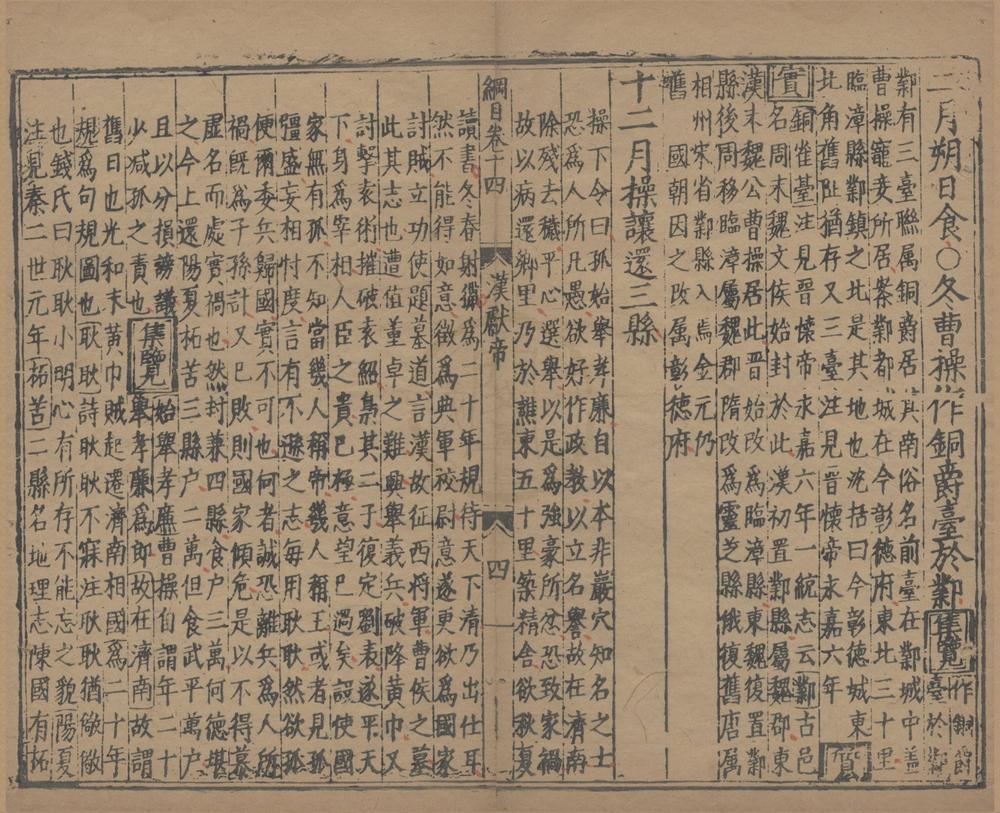 二月朔日食○冬曹操作銅爵臺於鄴集覽作銅爵臺於鄴
鄴有三臺聯属銅爵居其南俗名前臺在鄴城中盖
曹操寵妾所居案鄴都城在今彰德府東北三十里
臨漳縣鄴鎮之北是其地也沈括曰今彰德城東
北角舊阯猶存又三臺注見晉懷帝永嘉六年質
實銅雀臺注見晉懷帝永嘉六年一統志云鄴古邑
名周末魏文侯始封於此漢初置鄴縣屬魏郡東
漢末魏公曹操居此晋始改為臨漳縣東魏復置鄴
縣後周移臨漳屬魏郡隋改爲靈芝縣俄復舊唐属
相州宋省鄴縣入焉金元仍
舊國朝因之改属彰德府
十二月操讓還三縣
操下令曰孤始舉孝廉自以本非巖穴知名之士
恐爲人所凡愚欲好作政教以立名譽故在濟南
除殘去穢平心選舉以是爲強豪所忿恐致家禍
故以病還鄉里乃於譙東五十里築精舍欲秋夏
綱目卷十四 漢獻帝 四
讀書冬春射獵爲二十年規待天下清乃出仕耳
然不能得如意徵爲典軍校尉意遂更欲爲國家
討賊立功使題墓道言漢故征西将軍曹侯之墓
此其志也遭值董卓之難興舉義兵破降黄巾又
討擊袁術摧破袁紹梟其二子復定劉表遂平天
下身爲宰相人臣之貴已極意望已過矣設使國
家無有孤不知當幾人稱帝幾人稱王或者見孤
彊盛妄相忖度言有不遜之志每用耿耿然欲孤
便爾委兵歸國實不可也何者誠恐離兵爲人所
禍旣爲子孫計又已敗則國家傾危是以不得慕
虚名而處實禍也然封兼四縣食户三萬何德堪
之今上還陽夏柘苦三縣户二萬但食武平萬户
且以分損謗議
少减孤之責也集覽始舉孝廉曹操伯謂年二十
舉孝廉爲郎故在濟南故謂
舊日也光和末黄巾賊起遷濟南相國爲二十年
規規爲句規圖也耿耿詩耿耿不寐注耿耿猶儆儆
也錢氏曰耿耿小明心有所存不能忘之貌陽夏
注見秦二世元年柘苦二縣名地理志陳國有柘